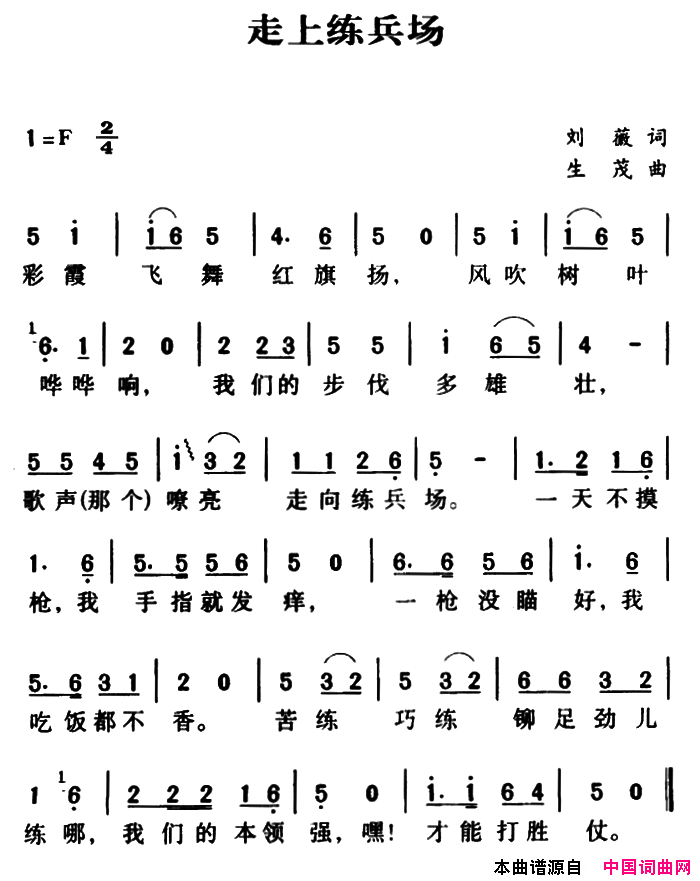 走上练兵场
1=F 2/4
刘 薇 词
生 茂 曲
5 i | i 6 5 | 4. 6 | 5 0 | 5 i | i 6 5 |
彩霞 飞 舞 红旗 扬, 风吹 树 叶
1 6. 1 | 2 0 | 2 2 3 | 5 5 | i 6 5 | 4 - |
哗哗 响, 我们的 步伐 多雄 壮,
5 5 4 5 | i 3 2 | 1 1 2 6 | 5 - | 1. 2 1 6 |
歌声(那个)嘹亮 走向练兵 场。 一天不摸
1. 6 | 5. 5 5 6 | 5 0 | 6. 6 5 6 | i. 6 |
枪,我 手指就发 痒, 一枪没瞄 好,我
5. 6 3 1 | 2 0 | 5 3 2 | 5 3 2 | 6 6 3 2 |
吃饭都不 香。 苦练 巧练 铆足劲儿
1 1 6 | 2 2 2 1 6 | 5 0 | i. i 6 4 | 5 0 ‖
练哪,我们的本领 强,嘿!才能打胜 仗。
本曲谱源自 中国词曲网